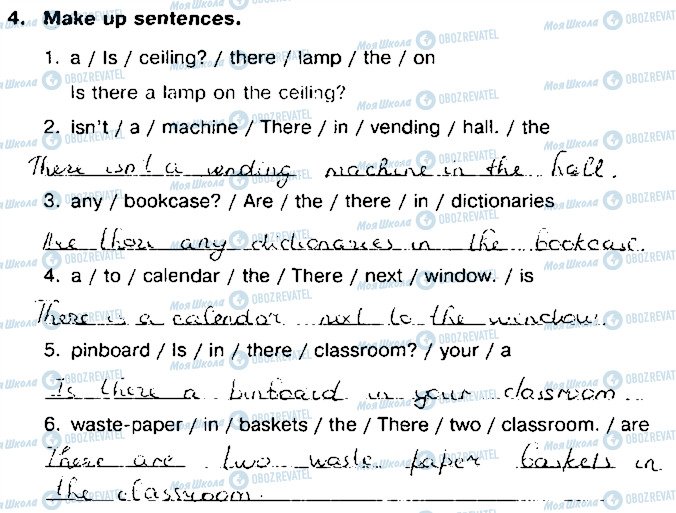 4. Make up sentences.
1. a / Is / ceiling? / there / lamp / the / on
Is there a lamp on the ceiling?
2. isn't / a / machine / There / in / vending / hall. / the
There isn't a vending machine in the hall.
3. any / bookcase? / Are / the / there / in / dictionaries
Are there any dictionaries in the bookcase.
4. a / to / calendar / the / There / next / window. / is
There is a calendar next to the window.
5. pinboard / Is / in / there / classroom? / your / a
Is there a binboard in your classroom
6. waste-paper / in / baskets / the / There / two / classroom. / are
There are two waste paper baskets in
the classroom.
Моя Школа OBOZREVATEL